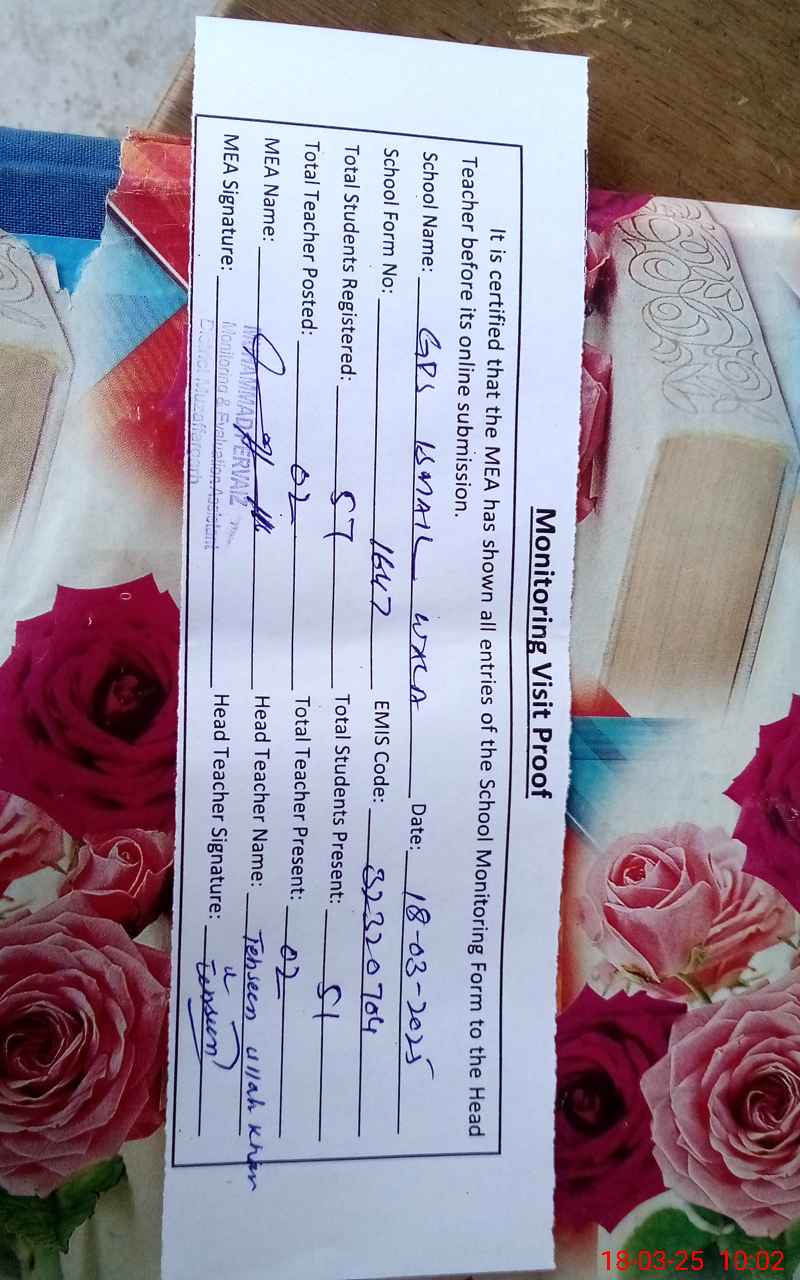 Monitoring Visit Proof
It is certified that the MEA has shown all entries of the School Monitoring Form to the Head
Teacher before its online submission.
School Name: GPS ISMAIL WALA Date: 18-03-2025
School Form No: 1647 EMIS Code: 32320704
Total Students Registered: 57 Total Students Present: 51
Total Teacher Posted: 02 Total Teacher Present: 02
MEA Name: Head Teacher Name: Tehseen Ullah Khan
MEA Signature: Head Teacher Signature:
MUHAMMAD PERVAIZ
Monitoring & Evaluation Assistant
District Muzaffargarh
18-03-25 10:02